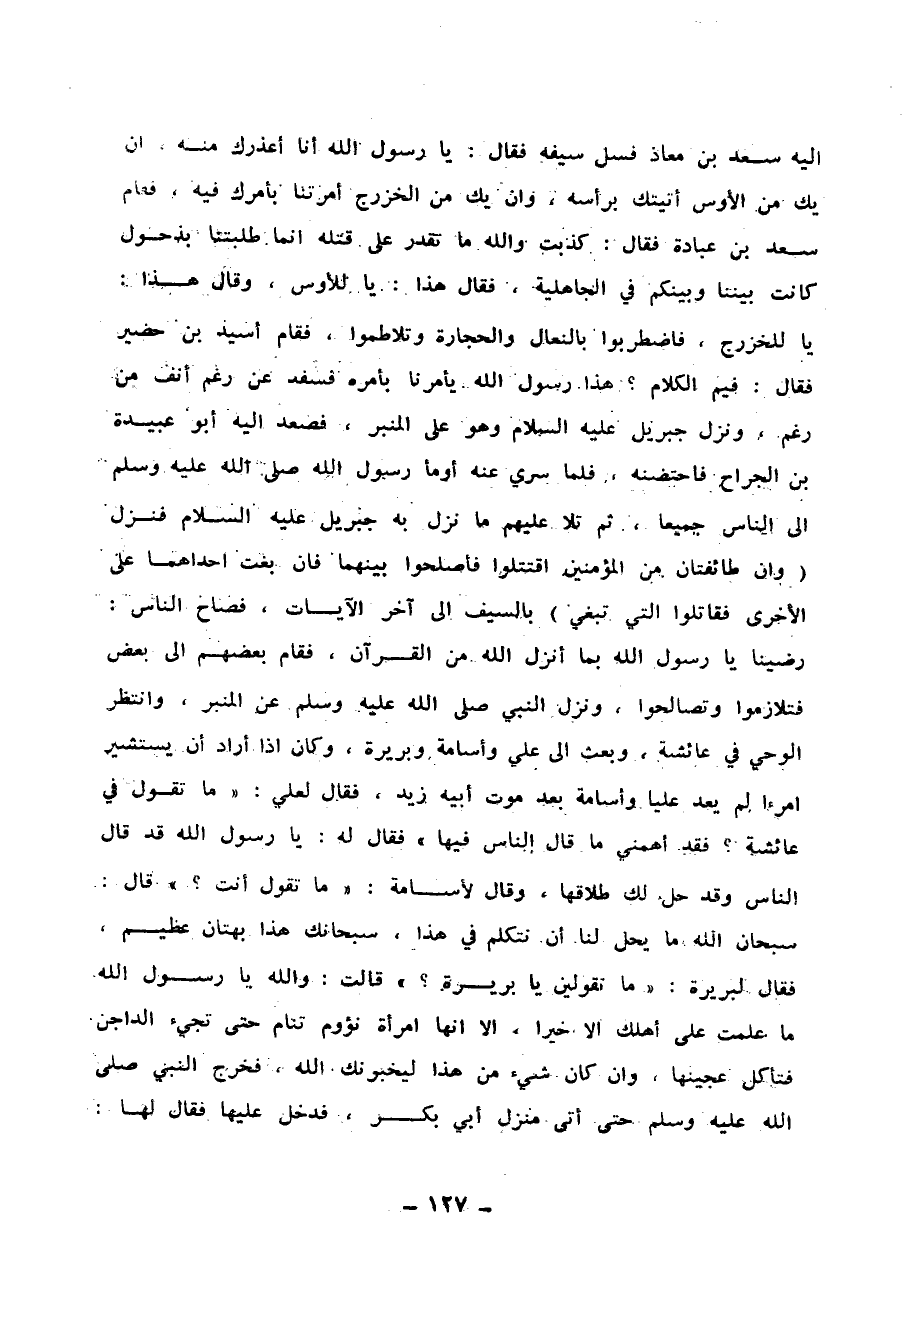 اليه سعد بن معاذ فسل سيفه فقال : يا رسول الله أنا أعذرك منه ، ان
يك من الأوس أتيتك برأسه ، وان يك من الخزرج أمرتنا بأمرك فيه ، فقام
سعد بن عبادة فقال : كذبت والله ما تقدر على قتله انما طلبتنا بذحول
كانت بيننا وبينكم في الجاهلية ، فقال هذا : يا للأوس ، وقال هذا :
يا للخزرج ، فاضطربوا بالنعال والحجارة وتلاطموا ، فقام أسيد بن حضير
فقال : فيم الكلام ؟ هذا رسول الله يأمرنا بأمره فسفد عن رغم أنف من
رغم ، ونزل جبريل عليه السلام وهو على المنبر ، فصعد اليه أبو عبيدة
بن الجراح فاحتضنه ، فلما سري عنه أومأ رسول الله صلى الله عليه وسلم
الى الناس جميعا ، ثم تلا عليهم ما نزل به جبريل عليه السلام فنزل
( وان طائفتان من المؤمنين اقتتلوا فأصلحوا بينهما فان بغت احداهما على
الأخرى فقاتلوا التي تبغي ) بالسيف الى آخر الآيات ، فصاح الناس :
رضينا يا رسول الله بما أنزل الله من القرآن ، فقام بعضهم الى بعض
فتلازموا وتصالحوا ، ونزل النبي صلى الله عليه وسلم عن المنبر ، وانتظر
الوحي في عائشة ، وبعث الى علي وأسامة وبريرة ، وكان اذا أراد أن يستشير
امرءا لم يعد عليا وأسامة بعد موت أبيه زيد ، فقال لعلي : « ما تقول في
عائشة ؟ فقد أهمني ما قال الناس فيها » فقال له : يا رسول الله قد قال
الناس وقد حل لك طلاقها ، وقال لأسامة : « ما تقول أنت ؟ » قال :
سبحان الله ما يحل لنا أن نتكلم في هذا ، سبحانك هذا بهتان عظيم ،
فقال لبريرة : « ما تقولين يا بريرة ؟ » قالت : والله يا رسول الله
ما علمت على أهلك الا خيرا ، الا انها امرأة نؤوم تنام حتى تجيء الداجن
فتأكل عجينها ، وان كان شيء من هذا ليخبرنك الله ، فخرج النبي صلى
الله عليه وسلم حتى أتى منزل أبي بكر ، فدخل عليها فقال لها :
- ١٢٧ -